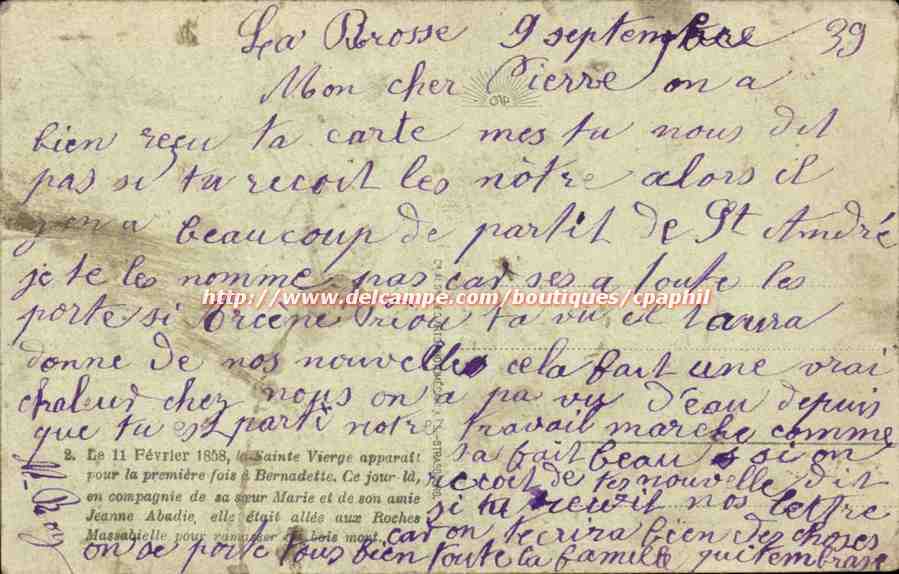 La Brosse 9 septembre 39
Mon cher Pierre on a
bien reçu ta carte mes tu nous dit
pas si tu recoit les nôtre alors il
y en a beaucoup de partit de St André
je te les nomme pas car ses a toute les
http://www.delcampe.com/boutiques/cpaphil
porte si Ercene Priou ta vu il taura
donne de nos nouvelles cela fait une vrai
chaleur chez nous on a pa vu d'eau depuis
que tu est parti notre travail marche comme
sa fait beau si on
recoit de tes nouvelle dit
si tu recoit nos lettre
car on tecrira bien des choses
on se porte tous bien toute la famille qui tembrase
2. Le 11 Février 1858, la Sainte Vierge apparaît
pour la première fois à Bernadette. Ce jour là,
en compagnie de sa sœur Marie et de son amie
Jeanne Abadie, elle était allée aux Roches
Massabielle pour ramasser du bois mort.